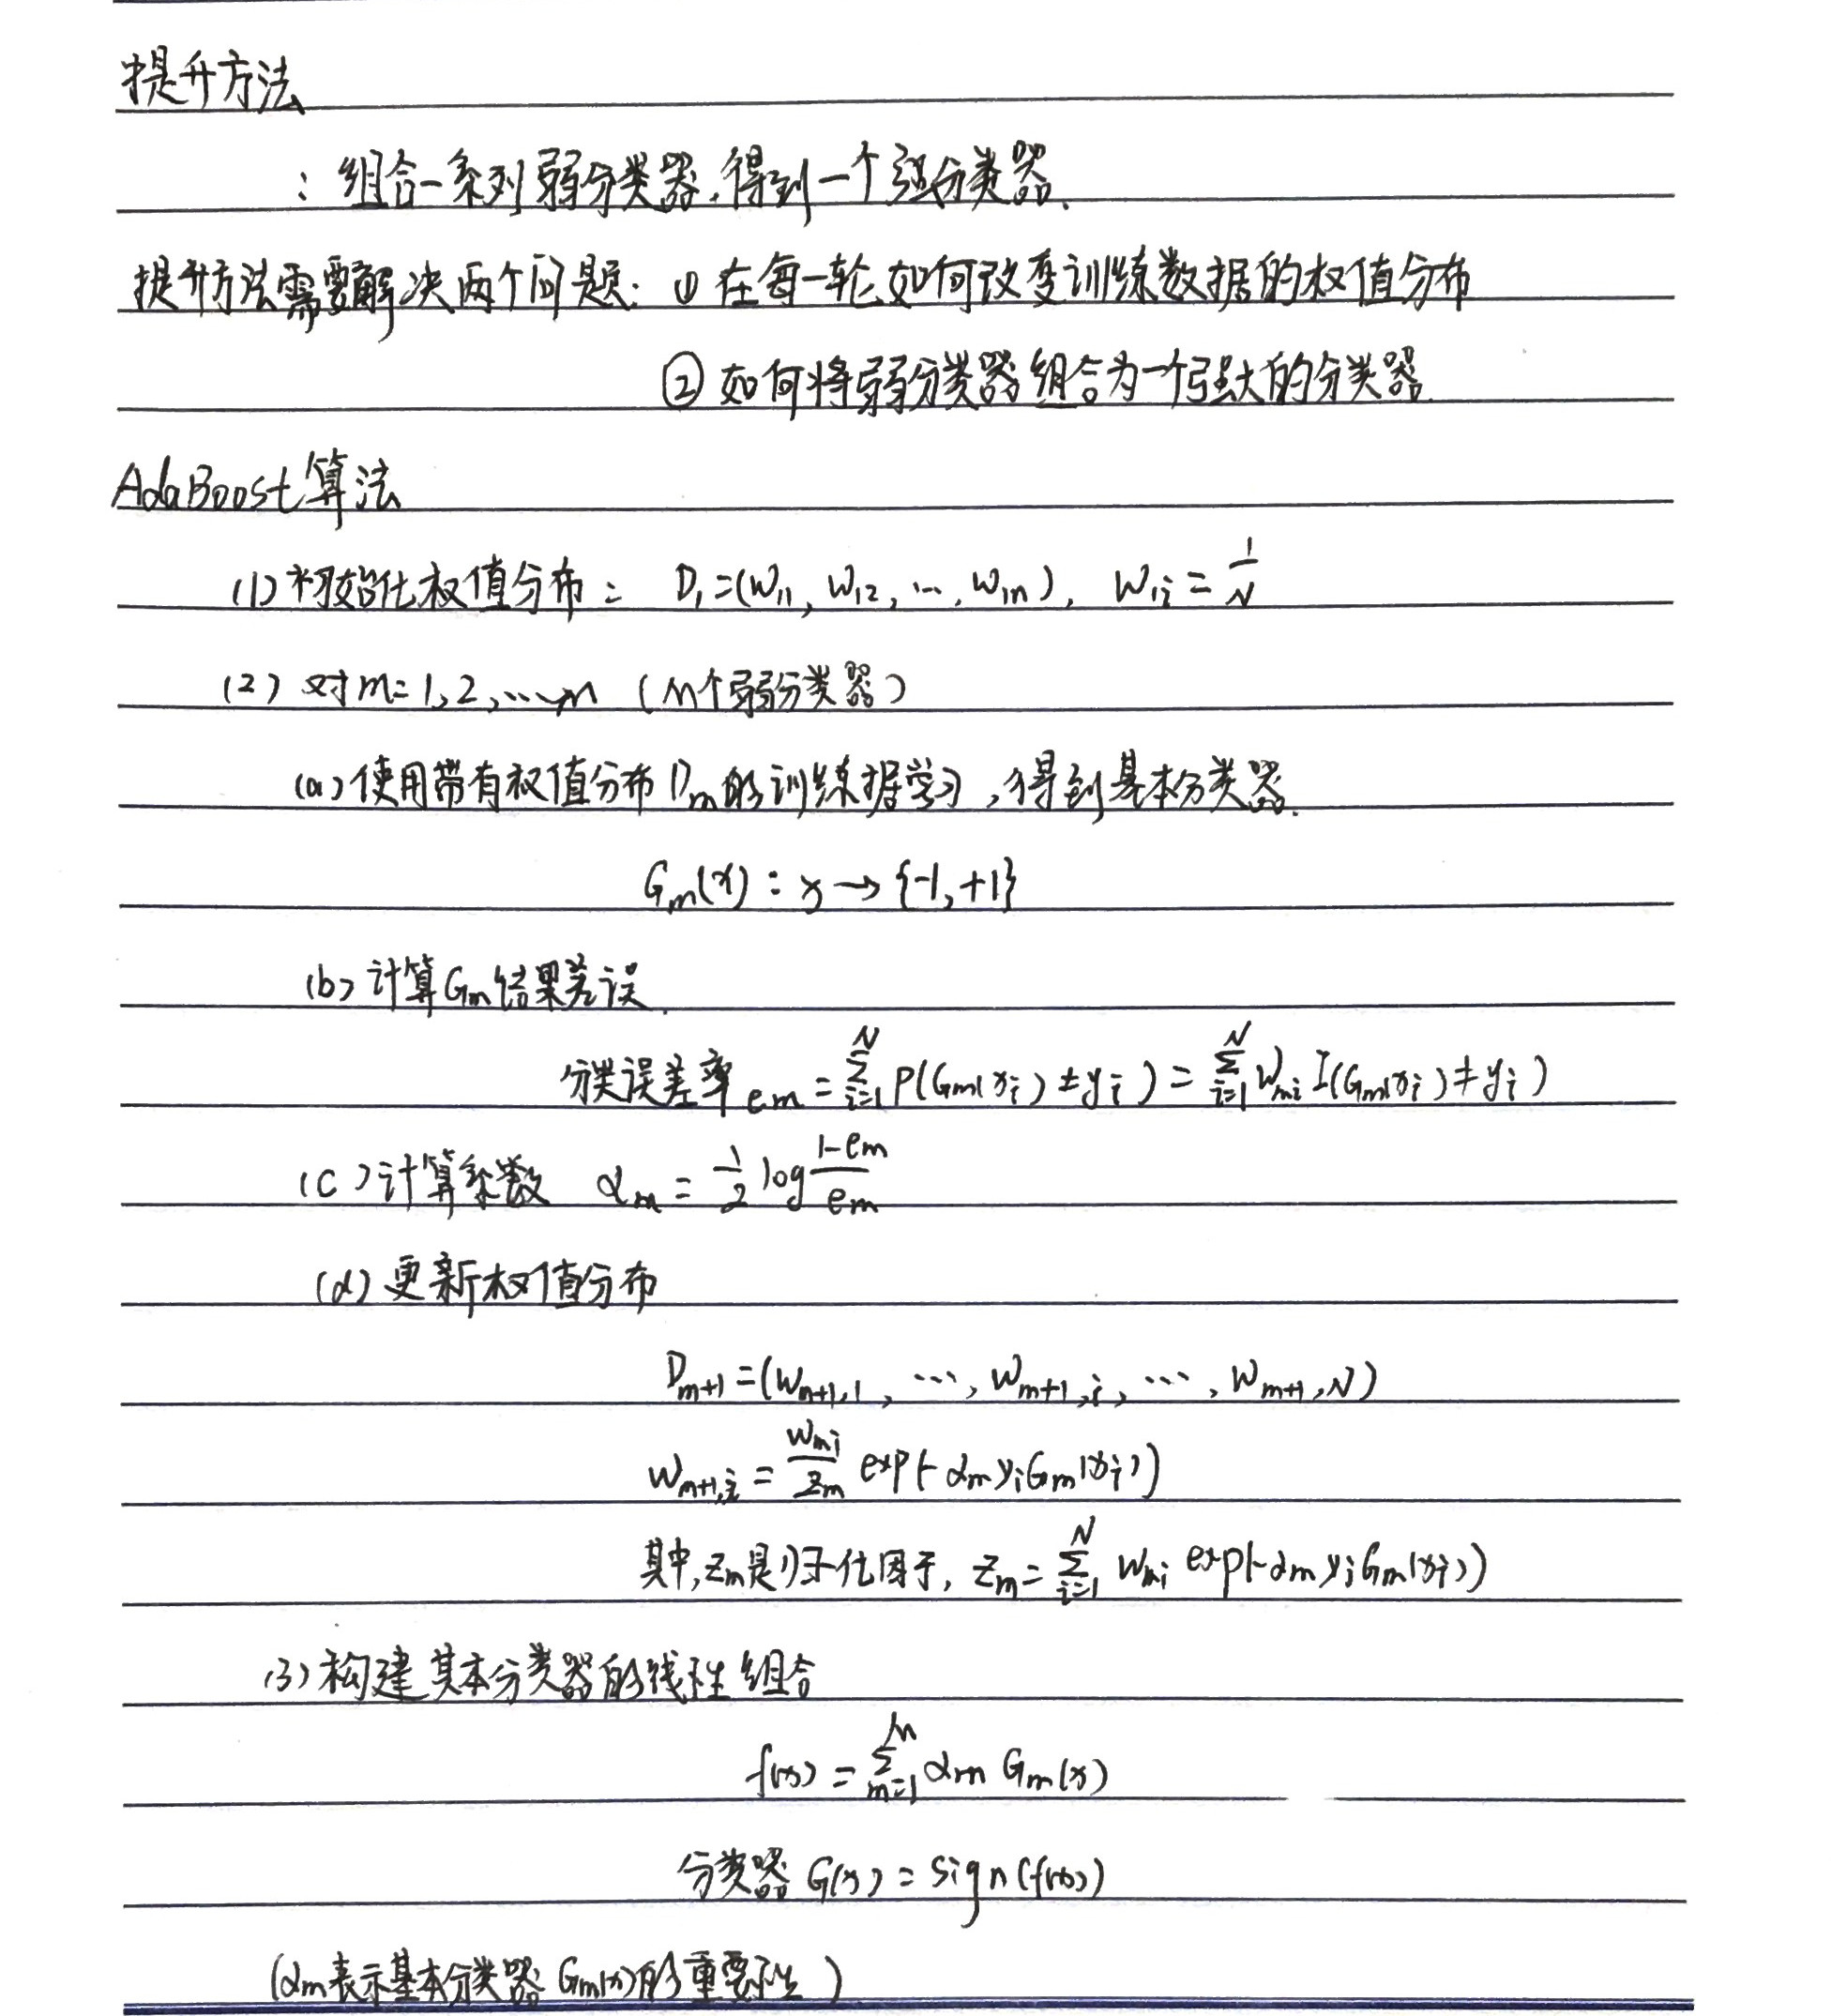 提升方法
：组合一系列弱分类器,得到一个强分类器.
提升方法需要解决两个问题: ① 在每一轮如何改变训练数据的权值分布
② 如何将弱分类器组合为一个强大的分类器.
AdaBoost算法
(1) 初始化权值分布： D₁=(w₁₁, w₁₂, …, w₁ₙ), w₁ᵢ = 1/N
(2) 对m=1,2,…,M (M个弱分类器)
(a) 使用带有权值分布Dm的训练据学习,得到基本分类器.
Gm(x) : x → {-1,+1}
(b) 计算Gm结果差误.
分类误差率 em = ∑_{i=1}^{N} P(Gm(xi) ≠ yi) = ∑_{i=1}^{N} wmi I(Gm(xi) ≠ yi)
(c) 计算系数 αm = 1/2 log (1-em)/em
(d) 更新权值分布
D_{m+1} = (w_{m+1,1}, …, w_{m+1,i}, …, w_{m+1,N})
w_{m+1,i} = wmi/zm exp(-αm yi Gm(xi))
其中,zm是归一化因子, zm = ∑_{i=1}^{N} wmi exp(-αm yi Gm(xi))
(3) 构建其本分类器的线性组合
f(x) = ∑_{m=1}^{M} αm Gm(x)
分类器 G(x) = sign(f(x))
(αm表示基本分类器 Gm(x)的重要性)